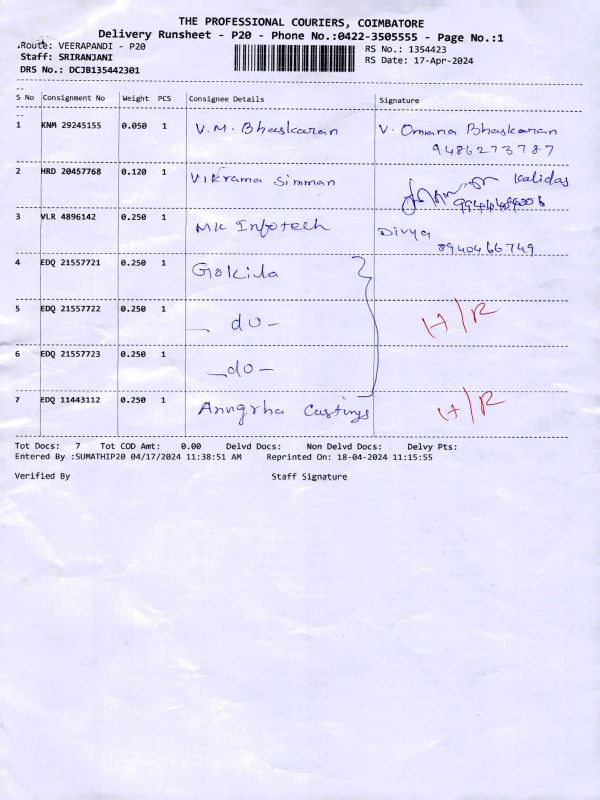 THE PROFESSIONAL COURIERS, COIMBATORE
Delivery Runsheet - P20 - Phone No.:0422-3505555 - Page No.:1
Route: VEERAPANDI - P20
RS No.: 1354423
Staff: SRIRANJANI
RS Date: 17-Apr-2024
DRS No.: DCJB135442301
S No Consignment No Weight PCS Consignee Details Signature
1 KNM 29245155 0.050 1 V. M. Bhaskaran V. Omana Bhaskaran
9486273787
2 HRD 20457768 0.120 1 Vikrama Simman Kalidas
3 VLR 4896142 0.250 1 MK Infotech Divya
8940466749
4 EDQ 21557721 0.250 1 Gokila
5 EDQ 21557722 0.250 1 - do - H/R
6 EDQ 21557723 0.250 1 - do -
7 EDQ 11443112 0.250 1 Anugrha Castings H/R
Tot Docs: 7 Tot COD Amt: 0.00 Delvd Docs: Non Delvd Docs: Delvy Pts:
Entered By :SUMATHIP20 04/17/2024 11:38:51 AM Reprinted On: 18-04-2024 11:15:55
Verified By Staff Signature